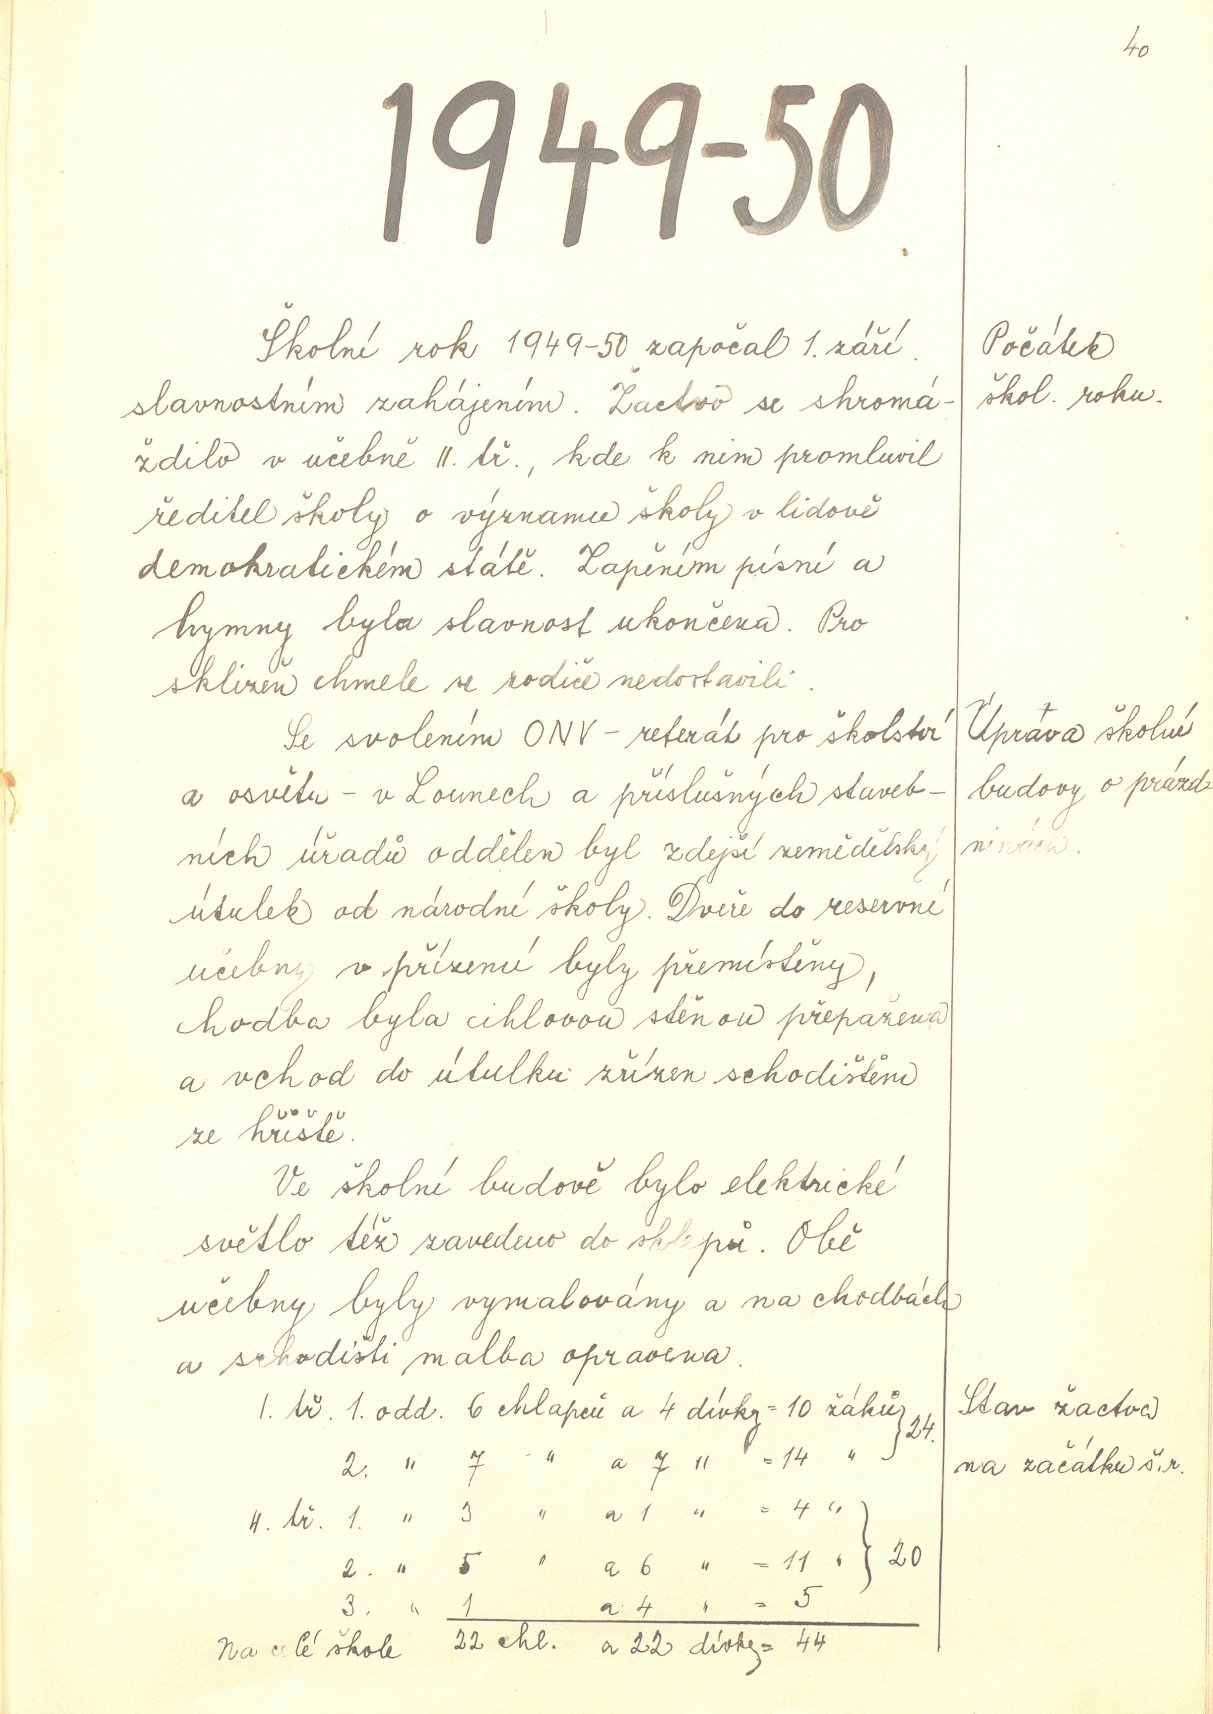 40
1949-50
Školní rok 1949-50 započal 1. září
slavnostním zahájením. Žactvo se shromá-
ždilo v učebně II. tř., kde k nim promluvil
ředitel školy o významu školy v lidově
demokratickém státě. Zapěním písní a
hymny byla slavnost ukončena. Pro
sklizeň chmele se rodiče nedostavili.
Počátek
škol. roku.
Se svolením ONV - referát pro školství
a osvětu - v Lounech a příslušných staveb-
ních úřadů oddělen byl zdejší zemědělský
útulek od národní školy. Dveře do reservní
učebny v přízemí byly přemístěny,
chodba byla cihlovou stěnou přepažena
a vchod do útulku zřízen schodištěm
ze hřiště.
Úprava školní
budovy o prázd-
ninách.
Ve školní budově bylo elektrické
světlo též zavedeno do sklepů. Obě
učebny byly vymalovány a na chodbách
a schodišti malba opravena.
1. tř. 1. odd. 6 chlapců a 4 dívky = 10 žáků } 24.
2. " 7 " a 7 " = 14 "
II. tř. 1. " 3 " a 1 " = 4 "
2. " 5 " a 6 " = 11 " } 20
3. " 1 a 4 " = 5
Na celé škole 22 chl. a 22 dívky = 44
Stav žactva
na začátku š.r.